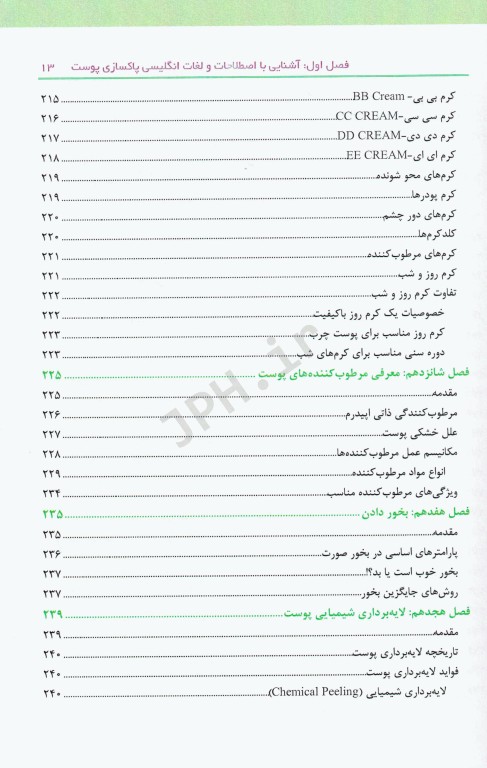 فصل اول: آشنایی با اصطلاحات و لغات انگلیسی پاکسازی پوست ۱۳
کرم بی بی- BB Cream ۲۱۵
کرم سی سی-CC CREAM ۲۱۶
کرم دی دی-DD CREAM ۲۱۷
کرم ای ای-EE CREAM ۲۱۸
کرم‌های محو شونده ۲۱۹
کرم پودرها ۲۱۹
کرم‌های دور چشم ۲۲۰
کلدکرم‌ها ۲۲۰
کرم‌های مرطوب‌کننده ۲۲۱
کرم روز و شب ۲۲۱
تفاوت کرم روز و شب ۲۲۲
خصوصیات یک کرم روز باکیفیت ۲۲۲
کرم روز مناسب برای پوست چرب ۲۲۳
دوره سنی مناسب برای کرم‌های شب ۲۲۳
فصل شانزدهم: معرفی مرطوب‌کننده‌های پوست ۲۲۵
مقدمه ۲۲۵
مرطوب‌کنندگی ذاتی اپیدرم ۲۲۶
علل خشکی پوست ۲۲۷
مکانیسم عمل مرطوب‌کننده‌ها ۲۲۸
انواع مواد مرطوب‌کننده ۲۲۹
ویژگی‌های مرطوب‌کننده مناسب ۲۳۴
فصل هفدهم: بخور دادن ۲۳۵
مقدمه ۲۳۵
پارامترهای اساسی در بخور صورت ۲۳۶
بخور خوب است یا بد؟! ۲۳۷
روش‌های جایگزین بخور ۲۳۷
فصل هجدهم: لایه‌برداری شیمیایی پوست ۲۳۹
مقدمه ۲۳۹
تاریخچه لایه‌برداری پوست ۲۴۰
فواید لایه‌برداری پوست ۲۴۰
لایه‌برداری شیمیایی (Chemical Peeling) ۲۴۰
JPH.ir